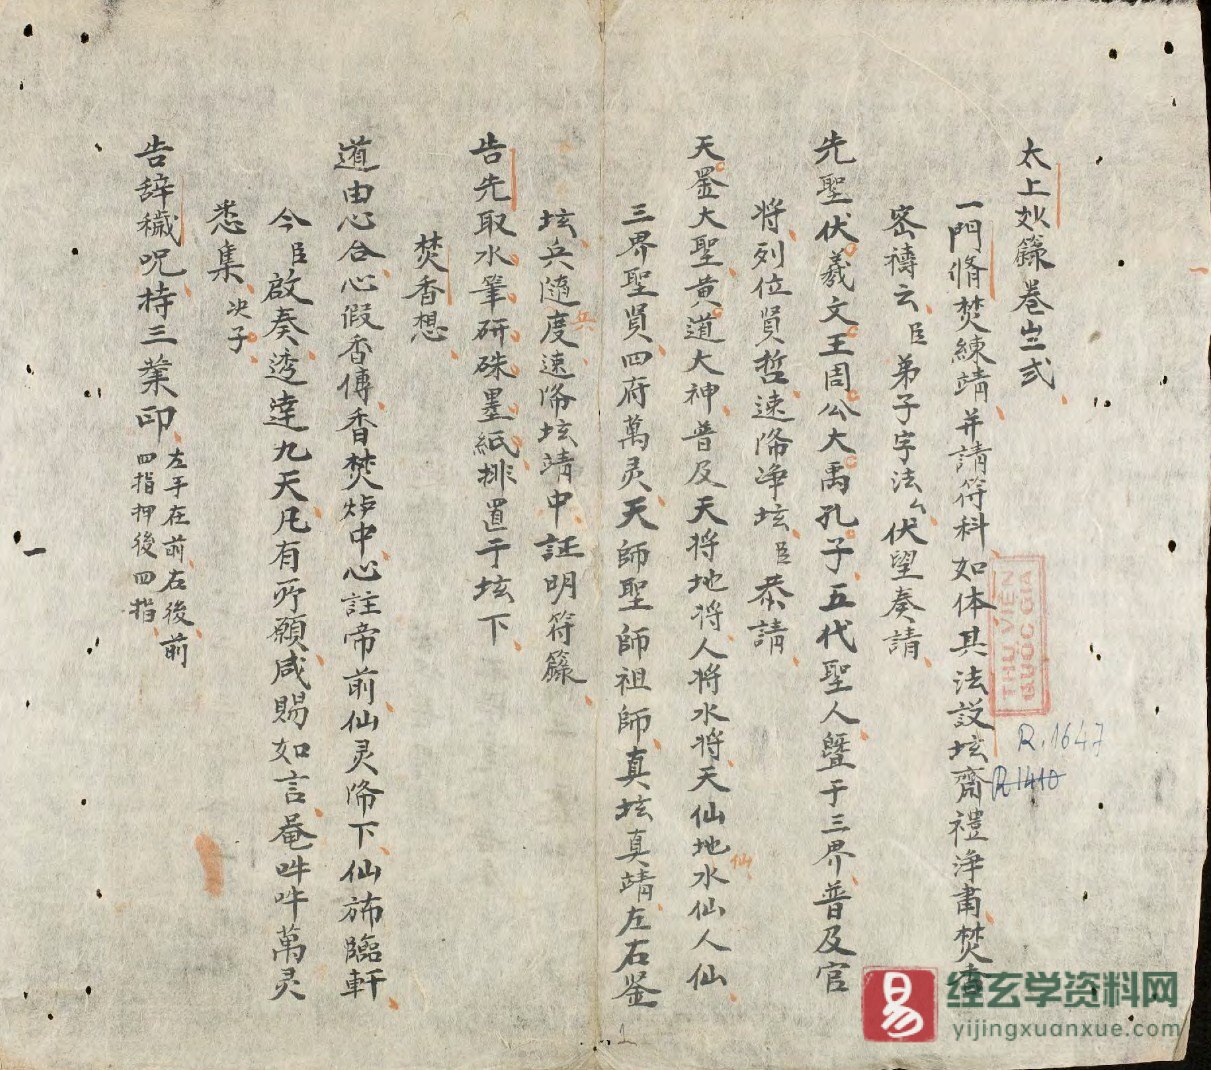 太上妙籙卷𠀧弍
一門脩焚練靖并請符科如体具法設坛齋禮浄肅焚香
密禱云臣弟子字法厶伏望奏請
先聖伏羲文王周公大禹孔子五代聖人曁于三界普及官
将列位賢哲速降净坛臣恭請
天罡大聖黄道大神普及天将地将人将水将天仙地水仙人仙
仙
三界聖賢四府萬灵天師聖師祖師真坛真靖左右鉴
坛兵随度速降坛靖中証明符籙
兵
告先取水筆研硃墨紙排置于坛下
焚香想
道由心合心假香傳香焚炉中心註帝前仙灵降下仙斾臨軒
今臣啟奏透達九天凡有所願咸賜如言菴吽吽萬灵
悉集决子
告辞穢呪持三業印
左手在前右後前
四指押後四指
一
THƯ VIỆN
QUỐC GIA
R.1647
R1410
1
易
经玄学资料网
yijingxuanxue.com